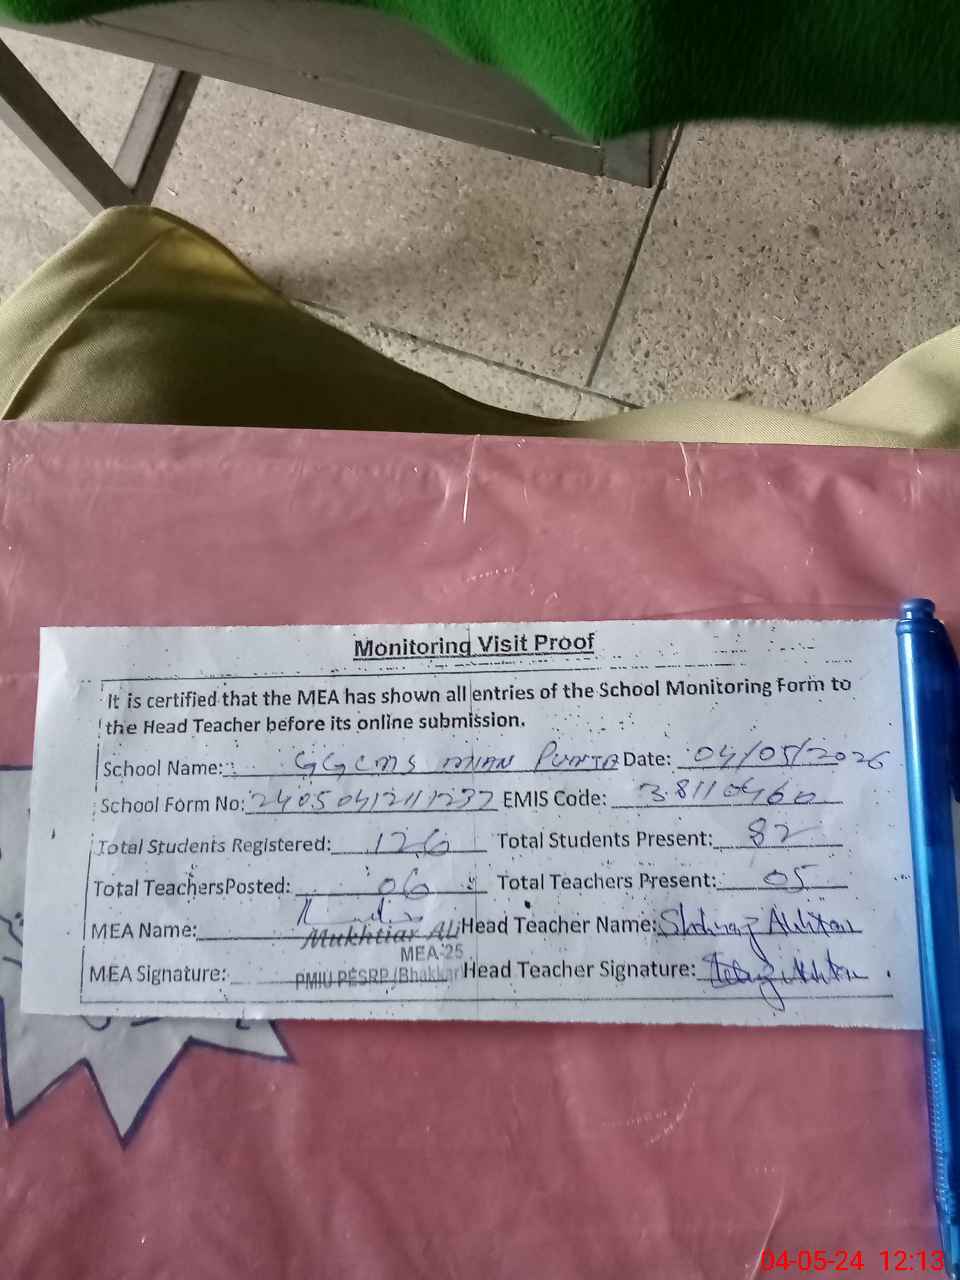 Monitoring Visit Proof
It is certified that the MEA has shown all entries of the School Monitoring Form to
the Head Teacher before its online submission.
School Name: GGCMS MIAN PUNJA Date: 04/05/2026
School Form No: 2405041211237 EMIS Code: 38110460
Total Students Registered: 126 Total Students Present: 82
Total TeachersPosted: 06 Total Teachers Present: 05
MEA Name: Mukhtiar Ali Head Teacher Name: Shahnaz Akhtar
MEA-25
MEA Signature: PMIU PESRP/Bhakkar Head Teacher Signature:
04-05-24 12:13